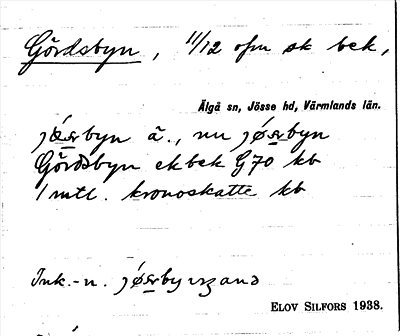 Gördsbyn, 11/12 ofm sk bek,
Älgå sn, Jösse hd, Värmlands län.
jǿsrbyn ä., nu jǿsrbyn
Gördsbyn ekbek G70 kb
1 mtl. kronoskatte kb
Ink.-n.
ELOV SILFORS 1938.